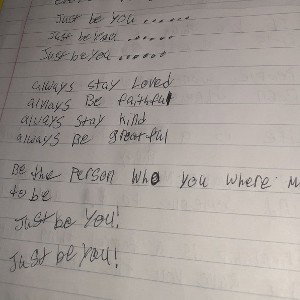 Just be you ......
Just be you ......
Just be you ......
always stay Loved
always Be faithful
always stay kind
always Be greatful
Be the Person Who you where
to be
Just be You!
Just be You!